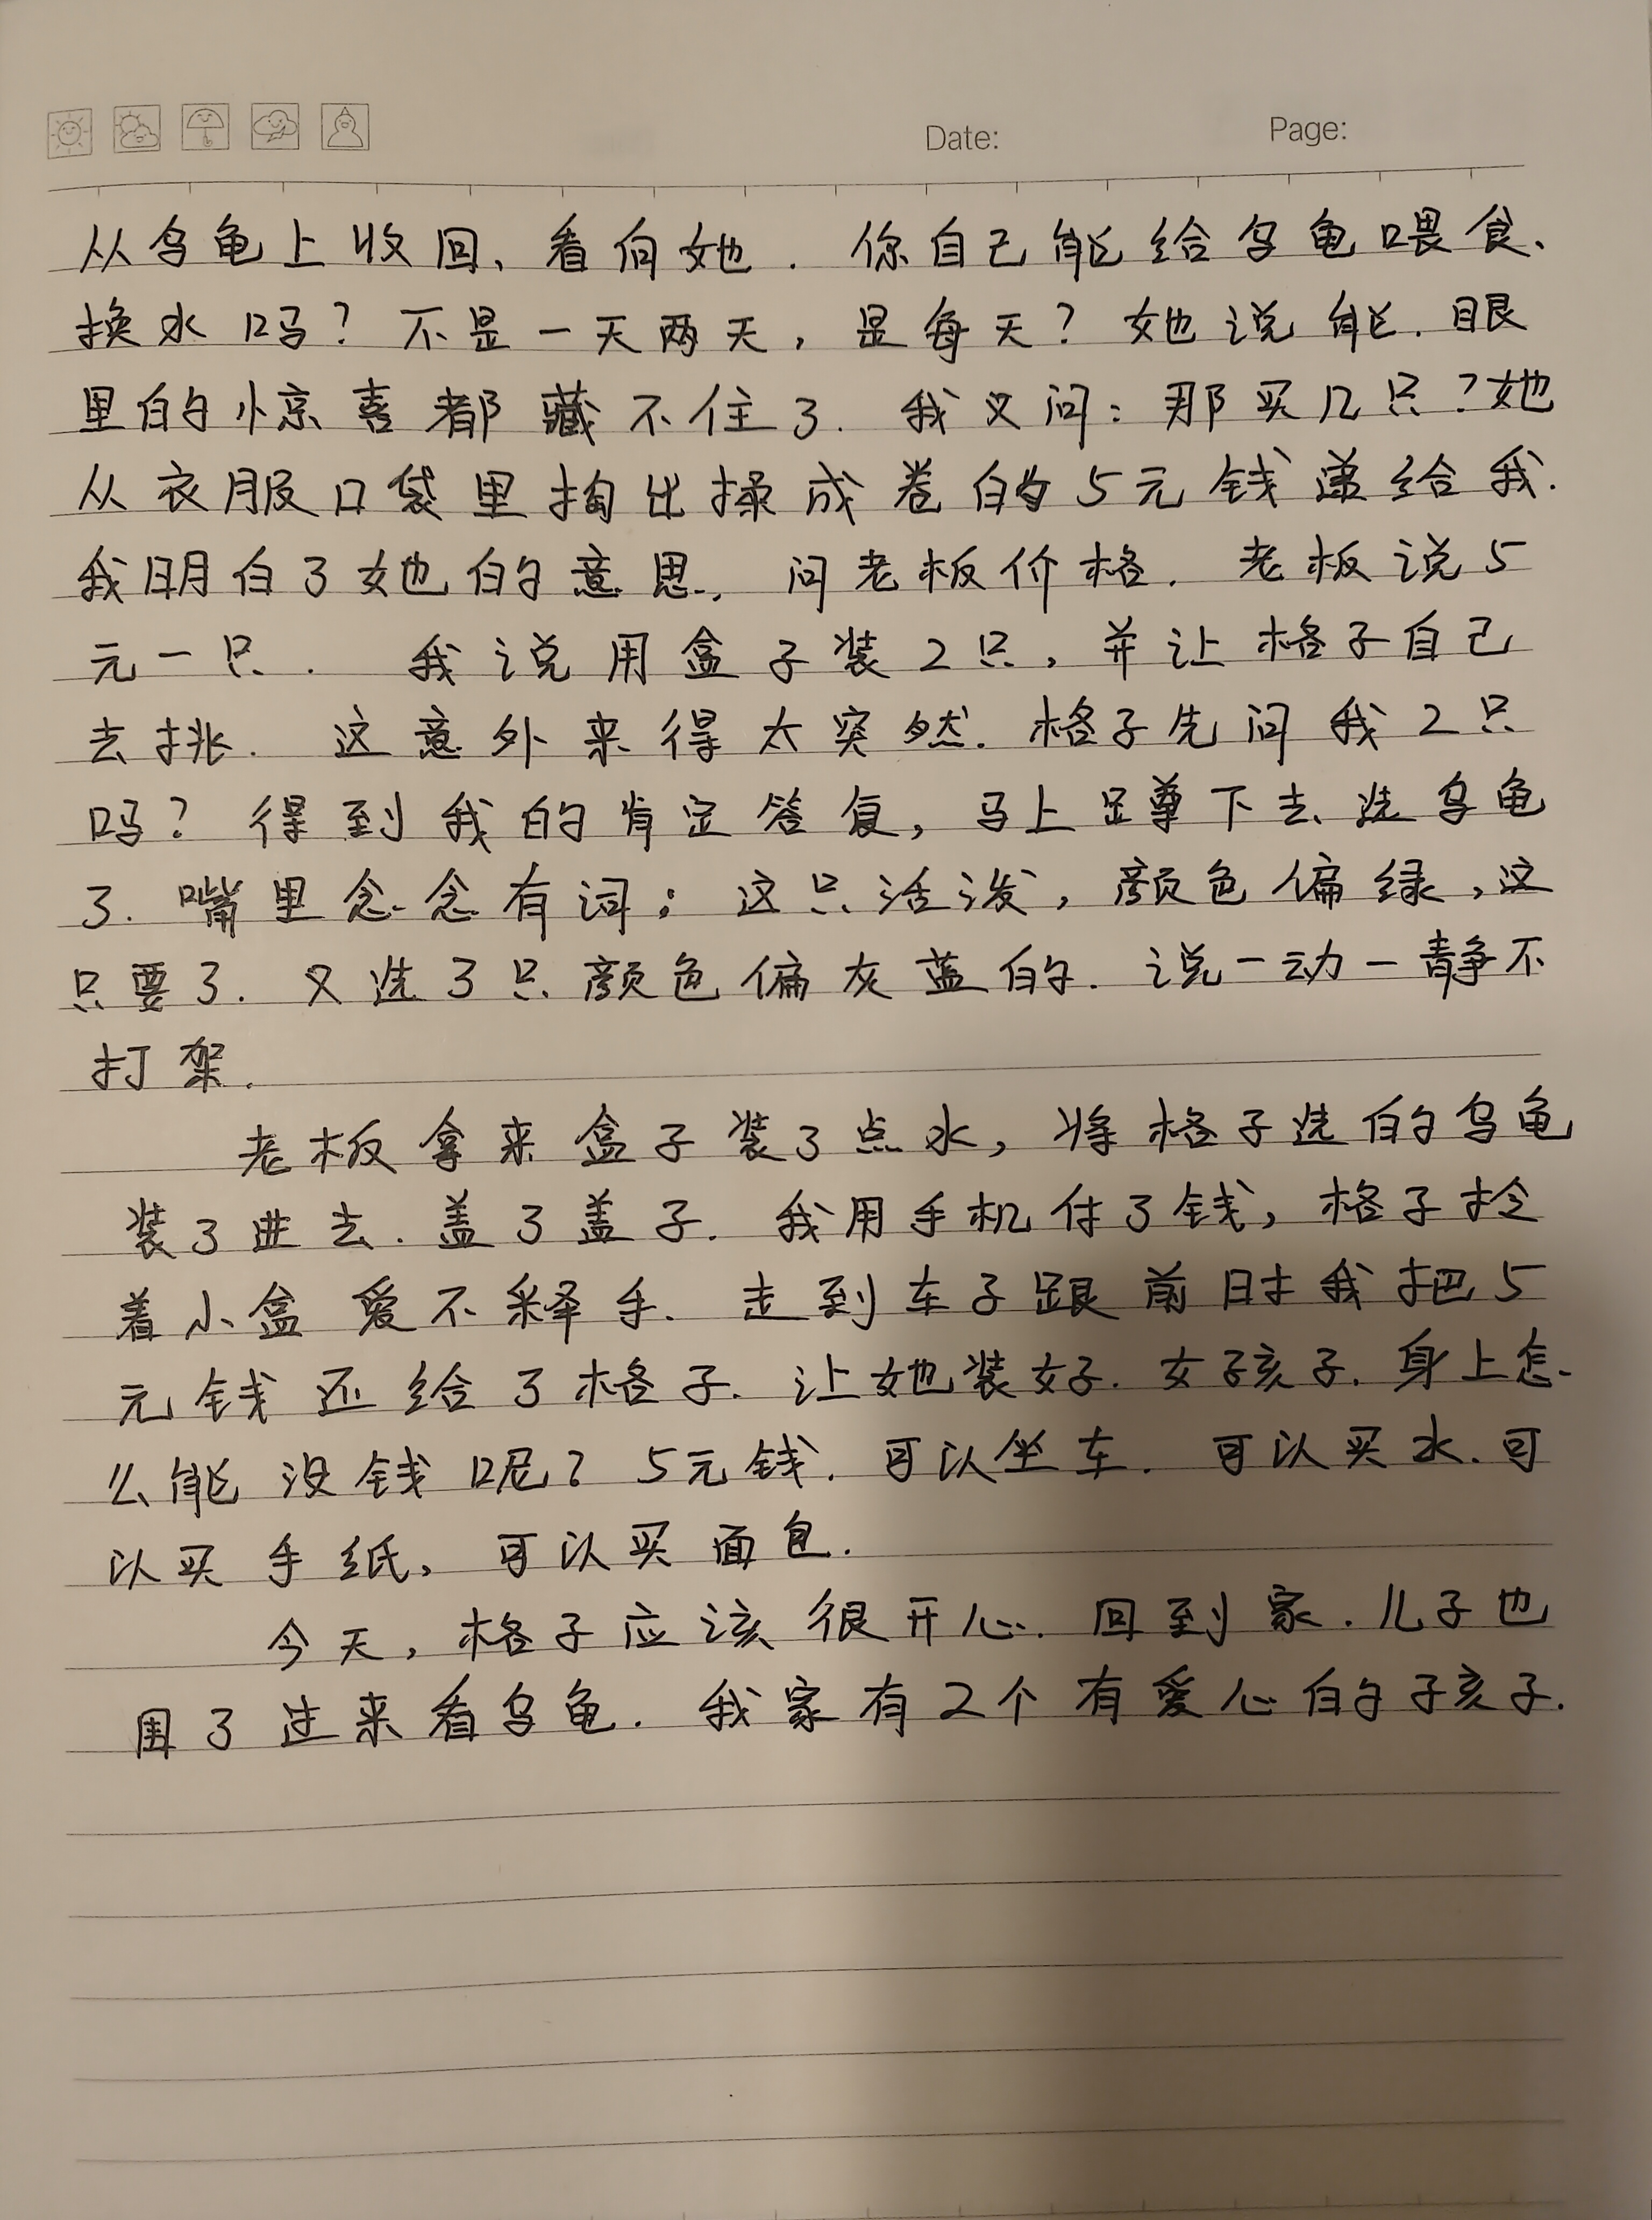 Date:
Page:
从乌龟上收回、看向她. 你自己能给乌龟喂食、
换水吗？不是一天两天，是每天？她说能.眼
里的惊喜都藏不住了. 我又问：那买几只？她
从衣服口袋里掏出揉成卷的5元钱递给我.
我明白了她的意思, 问老板价格. 老板说5
元一只. 我说用盒子装2只，并让格子自己
去挑. 这意外来得太突然. 格子先问我2只
吗？得到我的肯定答复，马上蹲下去选乌龟
了. 嘴里念念有词：这只活泼，颜色偏绿，这
只要了. 又选了只颜色偏灰蓝的. 说一动一静不
打架.
老板拿来盒子装了点水，将格子选的乌龟
装了进去.盖了盖子. 我用手机付了钱，格子拎
着小盒爱不释手. 走到车子跟前时我把5
元钱还给了格子. 让她装好. 女孩子. 身上怎
么能没钱呢？5元钱. 可以坐车. 可以买水.可
以买手纸，可以买面包.
今天，格子应该很开心. 回到家.儿子也
围了过来看乌龟. 我家有2个有爱心的孩子.